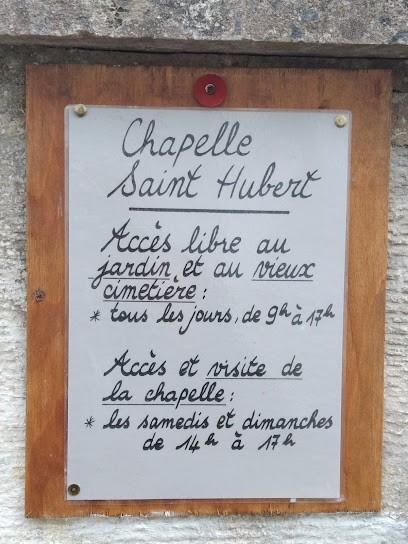 Chapelle
Saint Hubert
Accès libre au
jardin et au vieux
cimetière :
* tous les jours, de 9h à 17h
Accès et visite de
la chapelle :
* les samedis et dimanches
de 14h à 17h